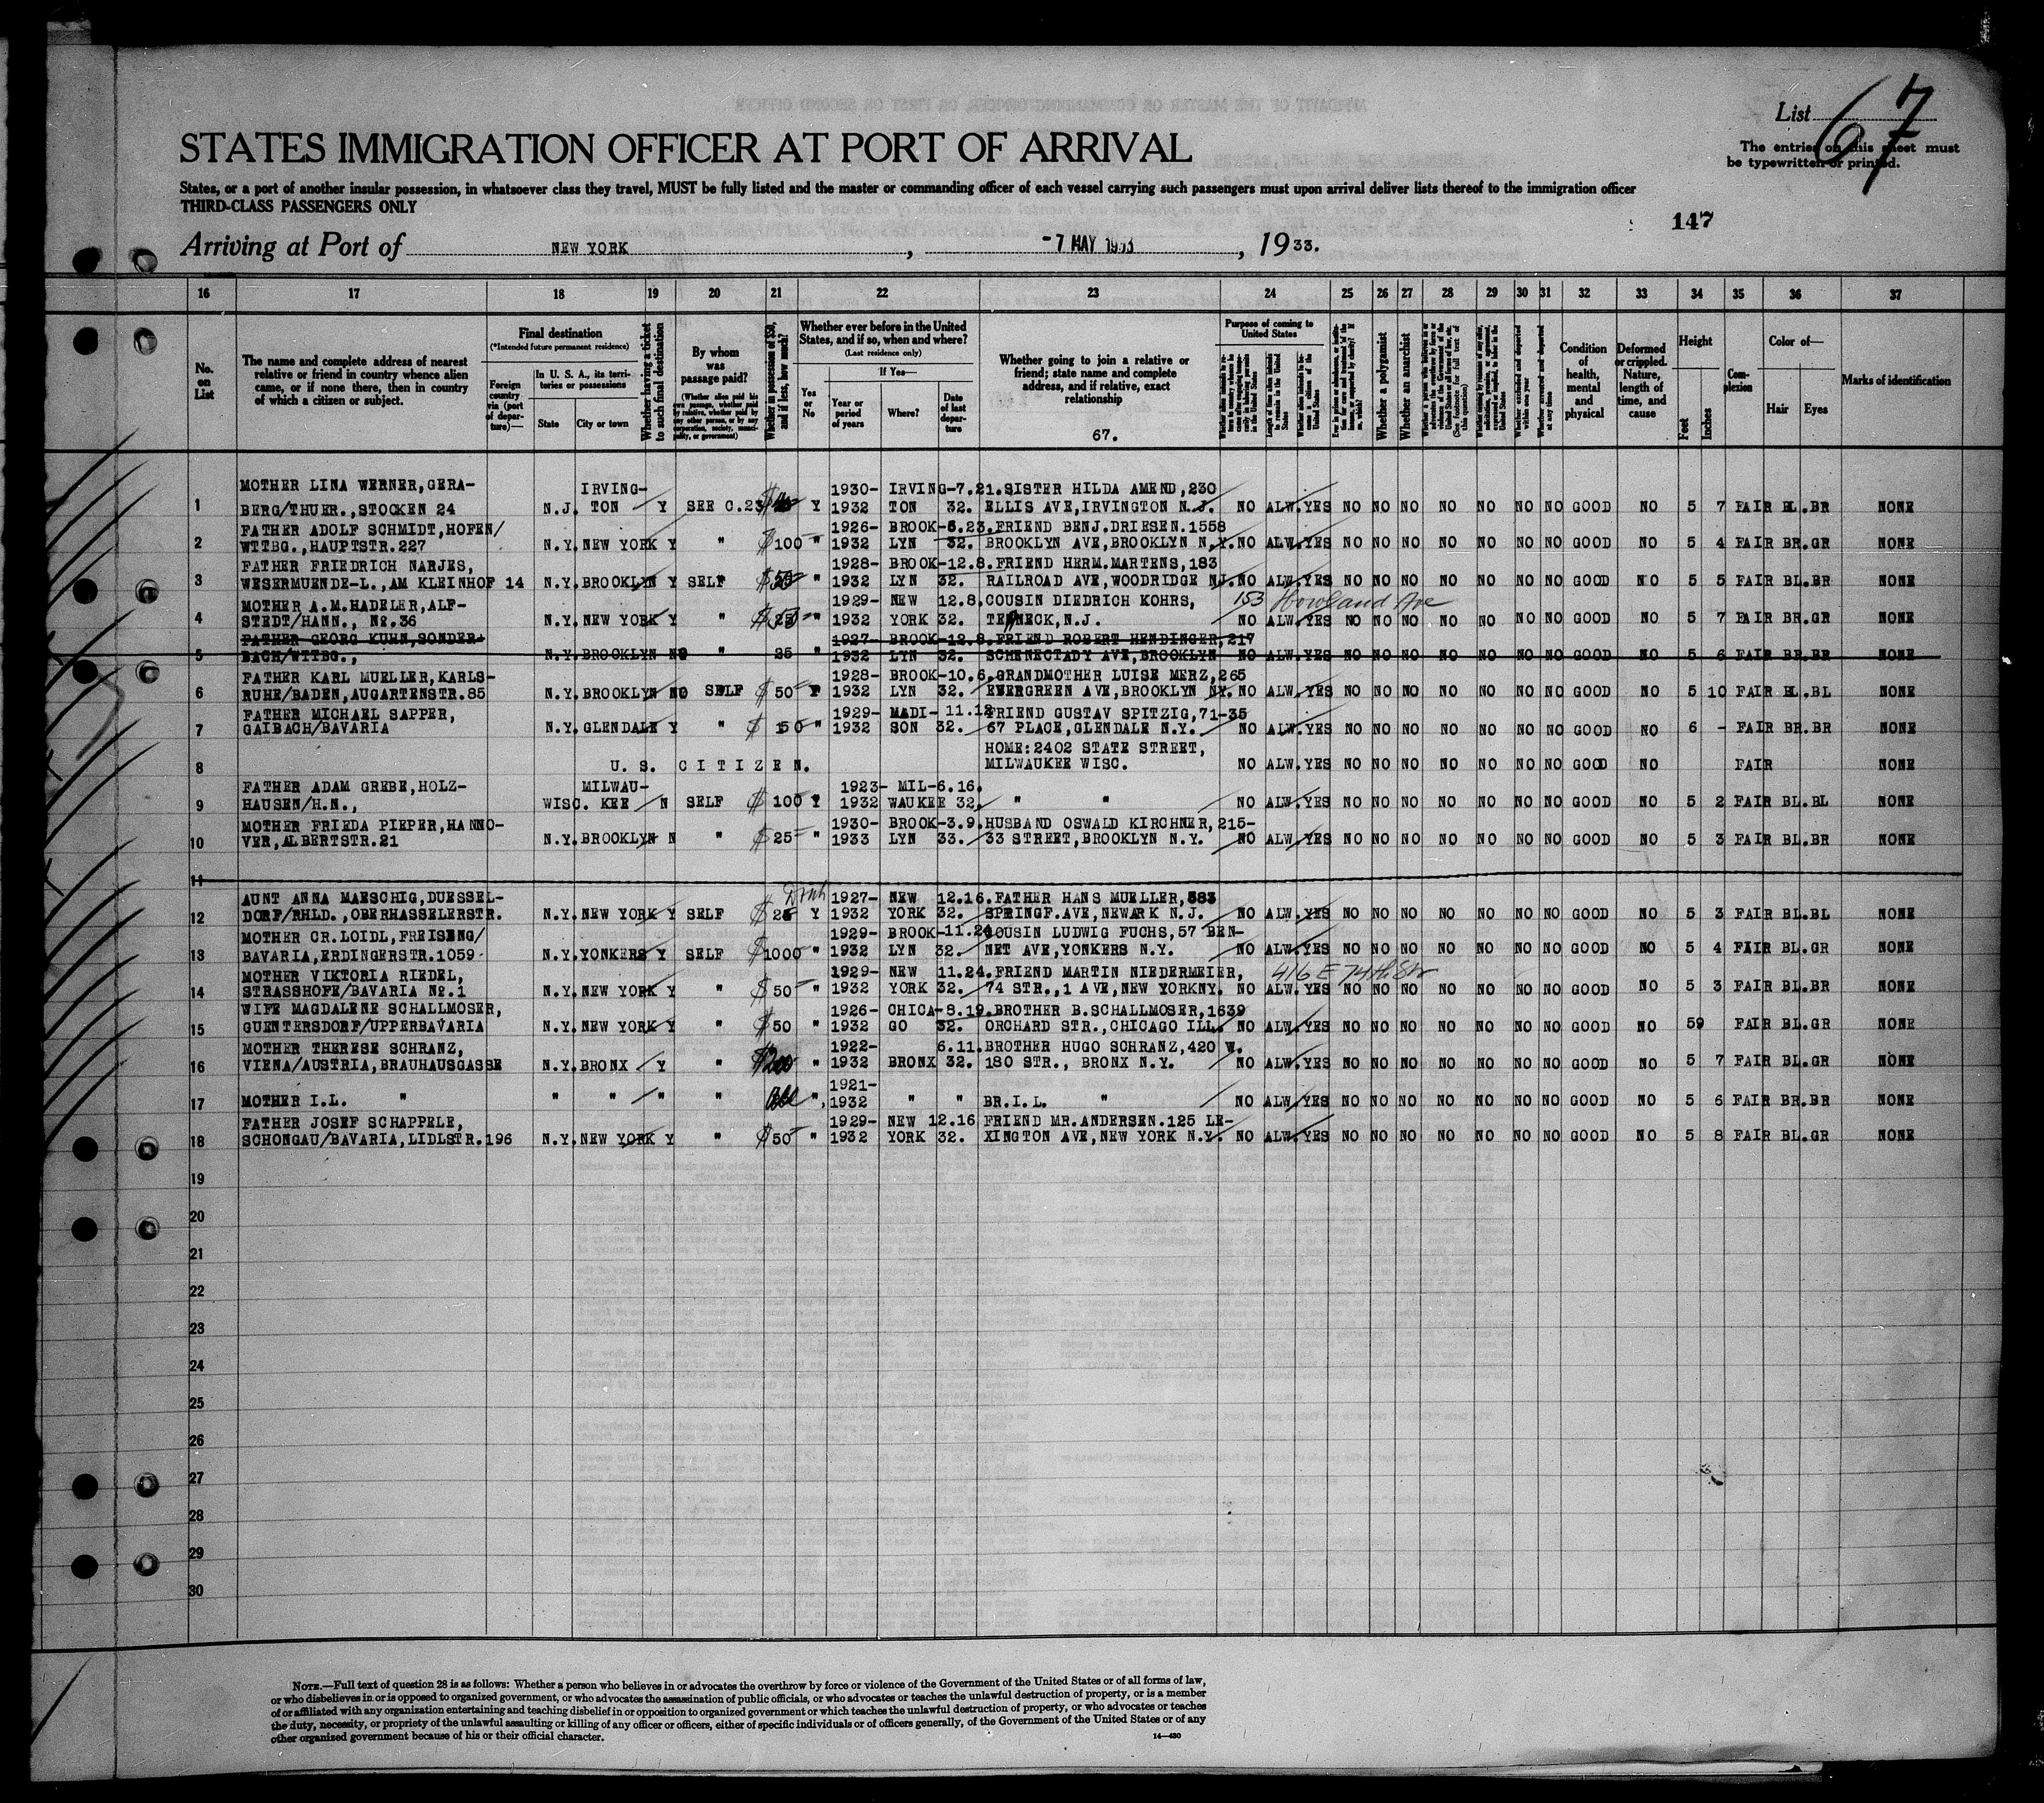 List 67
The entries on this sheet must
be typewritten or printed.
STATES IMMIGRATION OFFICER AT PORT OF ARRIVAL
States, or a port of another insular possession, in whatsoever class they travel, MUST be fully listed and the master or commanding officer of each vessel carrying such passengers must upon arrival deliver lists thereof to the immigration officer
THIRD-CLASS PASSENGERS ONLY
147
Arriving at Port of NEW YORK, -7 MAY 1933, 1933.
16 17 18 19 20 21 22 23 24 25 26 27 28 29 30 31 32 33 34 35 36 37
No. on List
The name and complete address of nearest relative or friend in country whence alien came, or if none there, then in country of which a citizen or subject.
Final destination
(*Intended future permanent residence)
Foreign country via (port of departure)—
In U. S. A., its territories or possessions
State City or town
Whether having a ticket to such final destination
By whom was passage paid?
(Whether alien paid his own passage, whether paid by relative, whether paid by any other person, or by any corporation, society, municipality, or government)
Whether in possession of $50, and if less, how much?
Whether ever before in the United States, and if so, when and where?
(Last residence only)
Yes or No
If Yes—
Year or period of years
Where?
Date of last departure
Whether going to join a relative or friend; state name and complete address, and if relative, exact relationship
67.
Purpose of coming to United States
Length of time alien intends to remain in the United States
Whether alien intends to become a citizen of the United States
Whether a polygamist
Whether an anarchist
Whether excluded and deported within one year
Whether arrested and deported at any time
Condition of health, mental and physical
Deformed or crippled. Nature, length of time, and cause
Height
Feet Inches
Complexion
Color of—
Hair Eyes
Marks of identification
MOTHER LINA WERNER, GERA- IRVING- 1930- IRVING-7.21. SISTER HILDA AMEND, 230
1 BERG/THUER., STOCKEN 24 N.J. TON Y SEE C.23 Y 1932 TON 32. ELLIS AVE, IRVINGTON N.J. NO ALW. YES NO NO NO NO NO NO NO GOOD NO 5 7 FAIR BL. BR NONE
FATHER ADOLF SCHMIDT, HOFEN/ 1926- BROOK-6.23. FRIEND BENJ. DRIESEN. 1558
2 WTTBG., HAUPTSTR. 227 N.Y. NEW YORK Y " $100 " 1932 LYN 32. BROOKLYN AVE, BROOKLYN N.Y. NO ALW. YES NO NO NO NO NO NO NO GOOD NO 5 4 FAIR BR. GR NONE
FATHER FRIEDRICH NARJES, 1928- BROOK-12.8. FRIEND HERM. MARTENS, 183
3 WESERMUENDE-L., AM KLEINHOF 14 N.Y. BROOKLYN Y SELF " 1932 LYN 32. RAILROAD AVE, WOODRIDGE NJ. NO ALW. YES NO NO NO NO NO NO NO GOOD NO 5 5 FAIR BL. BR NONE
MOTHER A.M. HADELER, ALF- 1929- NEW 12.8. COUSIN DIEDRICH KOHRS, 153 Howland Ave
4 STEDT/HANN., No. 36 N.Y. NEW YORK Y " " 1932 YORK 32. TENECK, N.J. NO ALW. YES NO NO NO NO NO NO NO GOOD NO 5 7 FAIR BR. GR NONE
FATHER GEORG KUHN, SONDER- 1927- BROOK-12.8. FRIEND ROBERT HENDINGER, 217
5 BACH/WTTBG., N.Y. BROOKLYN NO " 25 " 1932 LYN 32. SCHENECTADY AVE, BROOKLYN NO ALW. YES NO NO NO NO NO NO NO GOOD NO 5 6 FAIR BR. BR NONE
FATHER KARL MUELLER, KARLS- 1928- BROOK-10.6. GRANDMOTHER LUISE MERZ, 265
6 RUHE/BADEN, AUGARTENSTR. 85 N.Y. BROOKLYN NO SELF $50 Y 1932 LYN 32. EVERGREEN AVE, BROOKLYN NY. NO ALW. YES NO NO NO NO NO NO NO GOOD NO 5 10 FAIR BL. BL NONE
FATHER MICHAEL SAPPER, 1929- MADI- 11.12 FRIEND GUSTAV SPITZIG, 71-35
7 GAIBACH/BAVARIA N.Y. GLENDALE Y " $ 150 " 1932 SON 32. 67 PLACE, GLENDALE N.Y. NO ALW. YES NO NO NO NO NO NO NO GOOD NO 6 - FAIR BR. BR NONE
HOME: 2402 STATE STREET,
8 U.S. CITIZEN. MILWAUKEE WISC. NO ALW. YES NO NO NO NO NO NO NO GOOD NO FAIR NONE
FATHER ADAM GREBE, HOLZ- MILWAU- 1923- MIL-6.16.
9 HAUSEN/H.N., WISC. KEE N SELF $100 Y 1932 WAUKEE 32. " " NO ALW. YES NO NO NO NO NO NO NO GOOD NO 5 2 FAIR BL. BL NONE
MOTHER FRIEDA PIEPER, HANNO- 1930- BROOK-3.9. HUSBAND OSWALD KIRCHNER, 215-
10 VER, ALBERTSTR. 21 N.Y. BROOKLYN N " $25 " 1933 LYN 33. 33 STREET, BROOKLYN N.Y. NO ALW. YES NO NO NO NO NO NO NO GOOD NO 5 3 FAIR BL. BR NONE
11
AUNT ANNA MAESCHIG, DUESSEL- 1927- NEW 12.16. FATHER HANS MUELLER, 583
12 DORF/RHLD., OBERHASSELERSTR. N.Y. NEW YORK Y SELF $25 Y 1932 YORK 32. SPRINGF. AVE, NEWARK N.J. NO ALW. YES NO NO NO NO NO NO NO GOOD NO 5 3 FAIR BL. BL NONE
MOTHER CR. LOIDL, FREISENG/ 1929- BROOK-11.24. COUSIN LUDWIG FUCHS, 57 BEN-
13 BAVARIA, ERDINGERSTR. 1059 N.Y. YONKERS Y SELF $1000 " 1932 LYN 32. NET AVE, YONKERS N.Y. NO ALW. YES NO NO NO NO NO NO NO GOOD NO 5 4 FAIR BL. GR NONE
MOTHER VIKTORIA RIEDEL, 1929- NEW 11.24. FRIEND MARTIN NIEDERMEIER, 416 E 74th Str
14 STRASSHOFE/BAVARIA No. 1 N.Y. NEW YORK Y " $50 " 1932 YORK 32. 74 STR., 1 AVE, NEW YORKNY. NO ALW. YES NO NO NO NO NO NO NO GOOD NO 5 3 FAIR BL. BR NONE
WIFE MAGDALENE SCHALLMOSER, 1926- CHICA-8.19. BROTHER B. SCHALLMOSER, 1639
15 GUENTERSDORF/UPPERBAVARIA N.Y. NEW YORK Y " $50 " 1932 GO 32. ORCHARD STR., CHICAGO ILL. NO ALW. YES NO NO NO NO NO NO NO GOOD NO 59 FAIR BL. GR NONE
MOTHER THERESE SCHRANZ, 1922- 6.11. BROTHER HUGO SCHRANZ, 420 W.
16 VIENA/AUSTRIA, BRAUHAUSGASSE N.Y. BRONX Y " $200 " 1932 BRONX 32. 180 STR., BRONX N.Y. NO ALW. YES NO NO NO NO NO NO NO GOOD NO 5 7 FAIR BL. GR NONE
1921-
17 MOTHER I.L. " " " " " ", 1932 " " BR. I. L. " NO ALW. YES NO NO NO NO NO NO NO GOOD NO 5 6 FAIR BR. BR NONE
FATHER JOSEF SCHAPPELE, 1929- NEW 12.16 FRIEND MR. ANDERSEN. 125 LE-
18 SCHONGAU/BAVARIA, LIDLSTR. 196 N.Y. NEW YORK Y " $50 " 1932 YORK 32. XINGTON AVE, NEW YORK N.Y. NO ALW. YES NO NO NO NO NO NO NO GOOD NO 5 8 FAIR BL. GR NONE
19
20
21
22
23
24
25
26
27
28
29
30
NOTE.—Full text of question 28 is as follows: Whether a person who believes in or advocates the overthrow by force or violence of the Government of the United States or of all forms of law,
or who disbelieves in or is opposed to organized government, or who advocates the assassination of public officials, or who advocates or teaches the unlawful destruction of property, or is a member
of or affiliated with any organization entertaining and teaching disbelief in or opposition to organized government or which teaches the unlawful destruction of property, or who advocates or teaches
the duty, necessity, or propriety of the unlawful assaulting or killing of any officer or officers, either of specific individuals or of officers generally, of the Government of the United States or of any
other organized government because of his or their official character.
14—430